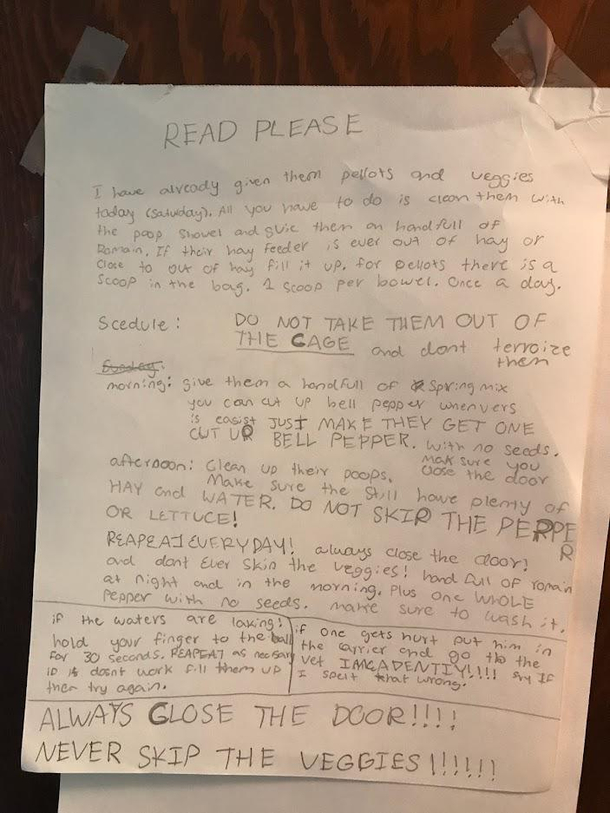 READ PLEASE
I have already given them pellots and veggies
today (Satuday). All you have to do is clean them with
the poop shovel and give them an handfull of
Romain. If their hay feeder is ever out of hay or
Close to out of hay fill it up. for pellots there is a
scoop in the bag. 1 scoop per bowel. Once a day.
Scedule: DO NOT TAKE THEM OUT OF
THE CAGE and dont terroize
them
Sunday:
morning: give them a handfull of Spring mix
you can cut up bell pepper whenvers
is easist JUST MAKE THEY GET ONE
CUT UP BELL PEPPER. With no seeds.
afternoon: Clean up their poops. mak sure you close the door
Make sure the still have plenty of
HAY and WATER. DO NOT SKIP THE PEPPER
OR LETTUCE!
REAPEAT EVERYDAY! always close the door!
and dont Ever Skip the veggies! hand full of romain
at night and in the morning. Plus one WHOLE
Pepper with no seeds. make sure to wash it.
if the waters are laking!
hold your finger to the ball
for 30 seconds. REAPEAT as necisary
if is dosnt work fill them up
then try again.
if one gets hurt put him in
the carrier and go to the
vet IMEADENTIY!!!! sry If
I spelt that wrong.
ALWAYS CLOSE THE DOOR!!!!
NEVER SKIP THE VEGGIES!!!!!!